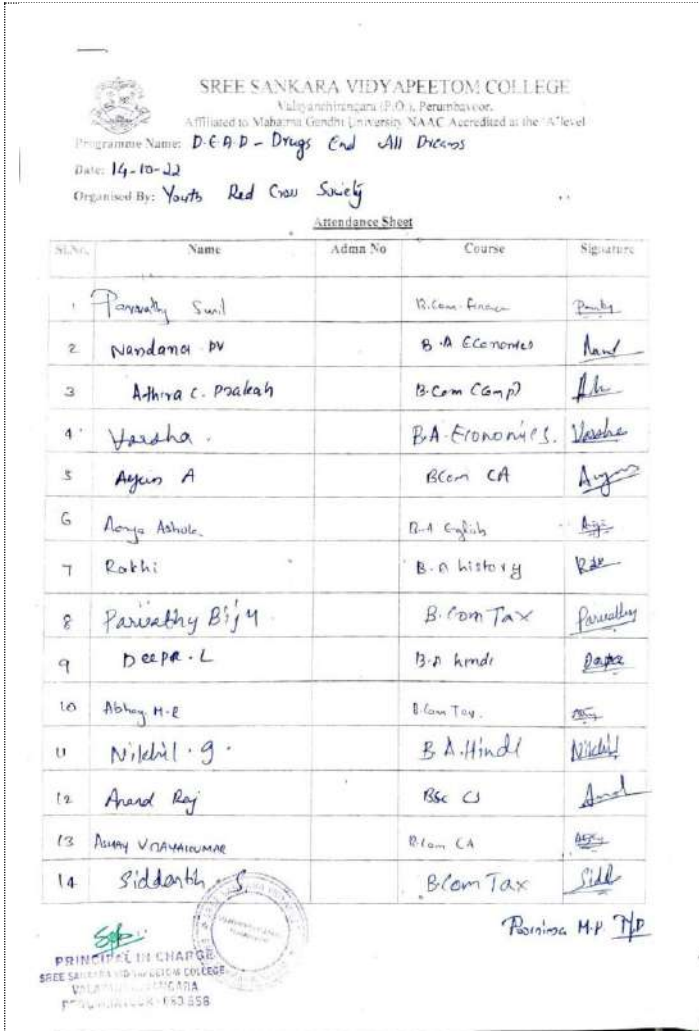 SREE SANKARA VIDYAPEETOM COLLEGE
Valayanchirangara (P.O.), Perumbavoor.
Affiliated to Mahatma Gandhi University NAAC Accredited at the 'A' level
Programme Name: D.E.A.D - Drugs End All Dreams
Date: 14-10-22
Organised By: Youth Red Cross Society
Attendance Sheet
Sl.No. Name Admn No Course Signature
1 Parvathy Sunil B.Com-finance
2 Nandana PV B.A Economics Nand
3 Athira C. Prakash B.Com (Comp)
4 Varsha. B.A-Economics. Varsha
5 A BCom CA
6 Ashok. B.A English
7 Rakhi B.A history
8 Parvathy Biju B.Com Tax Parvathy
9 Deepa.L B.A hindi Deepa
10 Abhay M.R B.Com Tax.
11 Nikhil.g. B A.Hindi Nikhil
12 Anand Raj BSc CS
13 VIJAYAKUMAR B.Com CA
14 Siddarth.S. B.Com Tax Sidd
Poornima M.P
PRINCIPAL IN CHARGE
SREE SANKARA VIDYAPEETOM COLLEGE
VALAYANCHIRANGARA
PERUMBAVOOR - 683 556